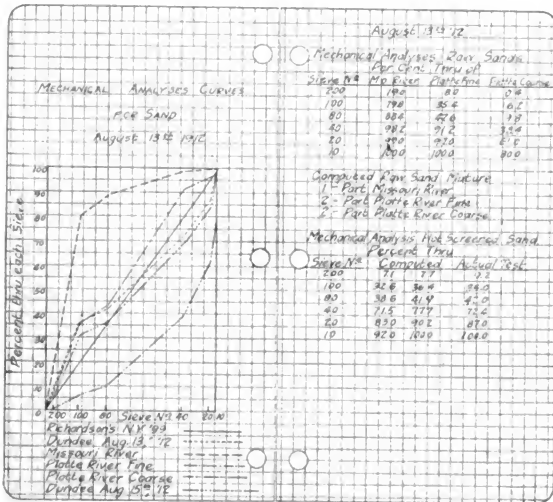 MECHANICAL ANALYSES CURVES
FOR SAND
August 13th 1912
Percent thru each Sieve
100
90
80
70
60
50
40
30
20
10
0
200 100 80 Sieve No. 40 20 10
Richardson's N.Y. '99
Dundee, Aug. 13, '12
Missouri River
Platte River Fine
Platte River Coarse
Dundee Aug 15th, '12
August 13th '12
Mechanical Analyses Raw Sands
Per Cent Thru of
Sieve No. Mo River Platte Fine Platte Coarse
200 8.0 0.4
100 79.8 35.4 6.2
80 88.4 42.6
40 98.2 91.2
20 97.0
10 100.0 100.0 80.0
Computed Raw Sand Mixture
1 - Part Missouri River
2 - Part Platte River Fine
2 - Part Platte River Coarse
Mechanical Analysis Hot Screened Sand
Percent Thru
Sieve No. Computed Actual Test
200 7.1 7.7 9.2
100 32.6 36.4 34.0
80 38.6 41.9
40 71.5 77.7 72.4
20 83.0 90.2 87.0
10 92.0 100.0 100.0